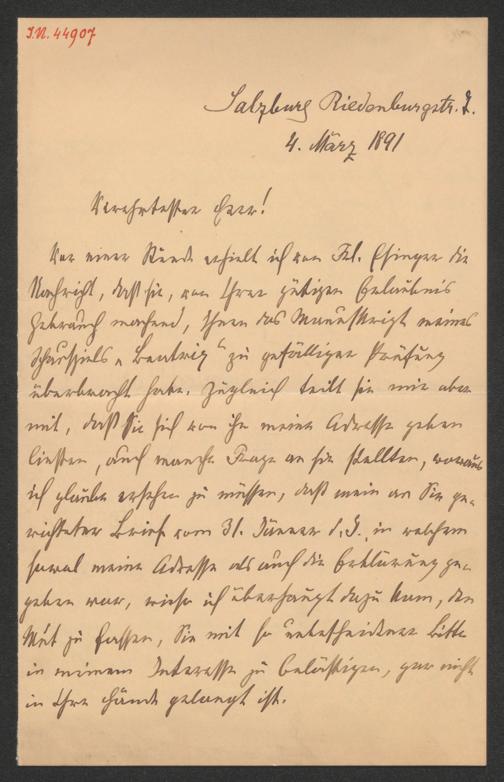 I.N. 44907
Salzburg Riedenburgstr. 7.
4. März 1891
Verehrtester Herr!
Vor einer Stunde erhielt ich von Frl. Esinger die
Nachricht, daß sie, von Ihrer gütigen Erlaubnis
Gebrauch machend, Ihnen das Manuskript meines
Schauspiels „Beatrix“ zu gefälliger Prüfung
überbracht habe. Zugleich teilt sie mir aber
mit, daß Sie sich von ihr meine Adresse geben
ließen, auch manche Frage an sie stellten, woraus
ich glaube ersehen zu müssen, daß mein an Sie ge-
richteter Brief vom 31. Jänner d. J., in welchem
sowol meine Adresse als auch die Erklärung ge-
geben war, wieso ich überhaupt dazu kam, den
Mut zu fassen, Sie mit so unbescheidener Bitte
in meinem Interesse zu belästigen, gar nicht
in Ihre Hände gelangt ist.